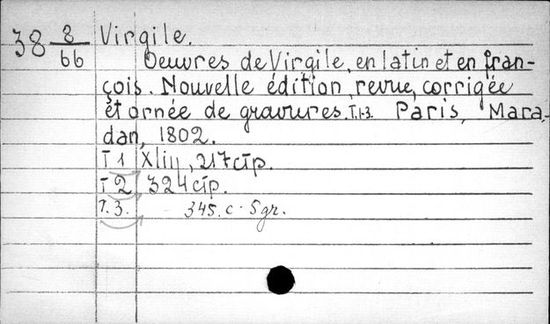 38 8/66 Virgile.
Oeuvres de Virgile, en latin et en fran-
çois. Nouvelle édition, revue, corrigée
et ornée de gravures. T.1-3. Paris, Mara-
dan, 1802.
T 1 XLIII, 217 стр.
T 2 324 стр.
T. 3. 345. c. 5 gr.